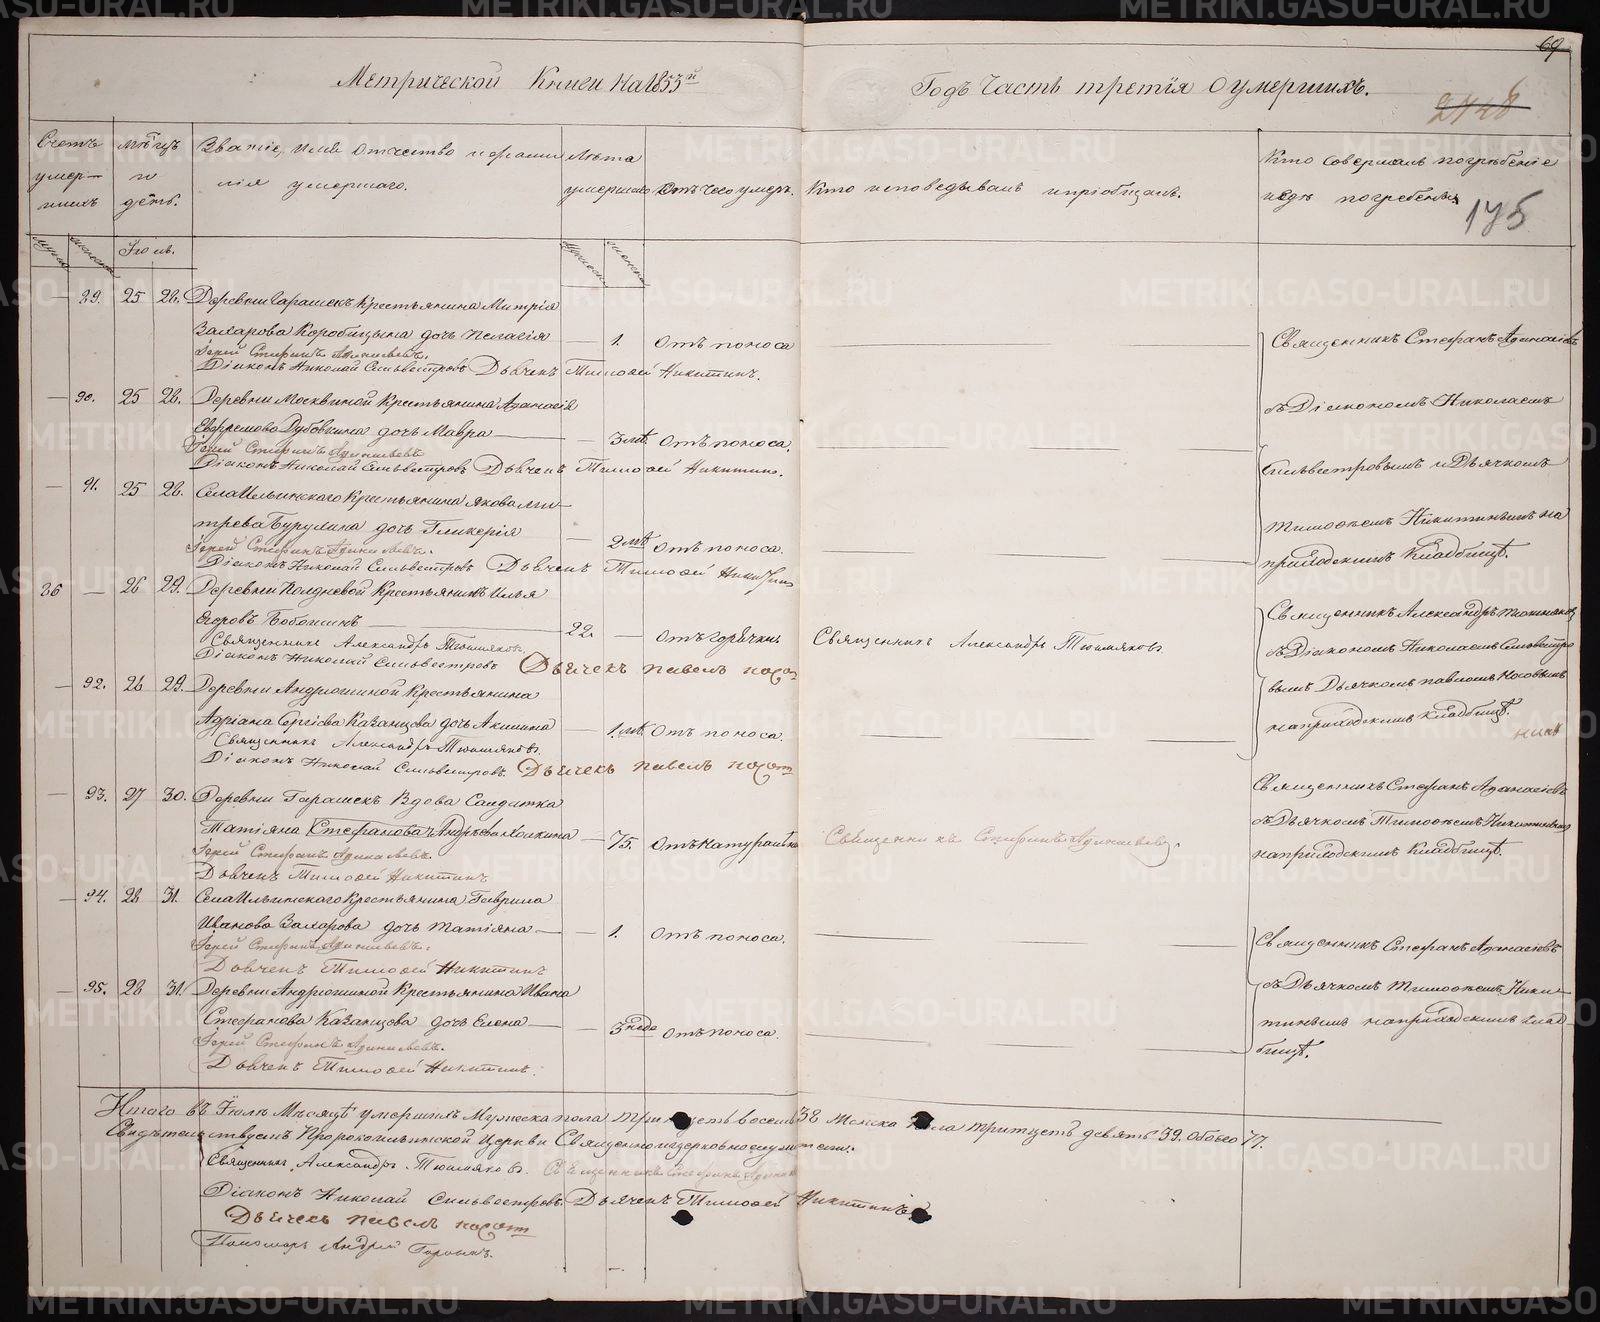 METRIKI.GASO-URAL.RU
69
Метрической Книги на 1855й Годъ Часть третія О умершихъ.
2428
Счетъ умер-шихъ
мѣсяцъ и день.
Званіе, имя отчество и фамилія умершаго.
Лѣта умершаго
Отъ чего умеръ.
Кто исповѣдывалъ и пріобщалъ.
Кто совершалъ погребеніе и гдѣ погребены
175
Іюль.
— 89. 25 28. Деревни Гарашекъ Крестьянина Митрія
Захарова Коробицына дочь Пелагія — 1. Отъ поноса
Іерей Стефанъ Афанасьевъ.
Діаконъ Николай Сильвестровъ Дьячекъ Тимофей Никитинъ.
Священникъ Стефанъ Афанасіевъ
— 90. 25 28. Деревни Москвиной Крестьянина Афанасія
Ефремова Дубовкина дочь Мавра — 3 лѣт. Отъ поноса.
Іерей Стефанъ Афанасьевъ
Діаконъ Николай Сильвестровъ Дьячекъ Тимофей Никитинъ.
съ Діакономъ Николаемъ
Сильвестровымъ и Дьячкомъ
— 91. 25 28. Села Ильинскаго Крестьянина Якова Дми-
трева Бурулина дочь Гликерія — 2 лѣт Отъ поноса.
Іерей Стефанъ Афанасьевъ.
Діаконъ Николай Сильвестровъ Дьячекъ Тимофей Никитинъ
Тимофѣемъ Никитинымъ на
приходскимъ Кладбищѣ.
36 — 26 29. Деревни Полдневой Крестьянинъ Илья
Егоровъ Бобошинъ — 22. — Отъ горячки Священникъ Александръ Тюшляковъ
Священникъ Александръ Тюшляковъ.
Діаконъ Николай Сильвестровъ Дьячекъ Павелъ Носов
Священникъ Александръ Тюшляковъ
съ Діакономъ Николаемъ Сильвестро
вымъ Дьячкомъ Павломъ Носовымъ
на приходскимъ Кладбищѣ.
— 92. 26 29. Деревни Андрюшиной Крестьянина
Адріана Сергіева Казанцова дочь Акилина — 1 лѣт. Отъ поноса.
Священникъ Александръ Тюшляковъ.
Діаконъ Николай Сильвестровъ. Дьячекъ Павелъ Носов
— 93. 27 30. Деревни Гарашекъ Вдова Солдатка
Татіана Стефанова Андрѣева — 75. Отъ натуральн Священникъ Стефанъ Афанасьевъ.
Іерей Стефанъ Афанасьевъ.
Дьячекъ Тимофей Никитинъ
Священникъ Стефанъ Афанасіевъ
съ Дьячкомъ Тимофѣемъ Никитинымъ
на приходскимъ Кладбищѣ.
— 94. 28 31. Села Ильинскаго Крестьянина Гаврила
Иванова Захарова дочь Татіана — 1. Отъ поноса.
Іерей Стефанъ Афанасьевъ.
Дьячекъ Тимофей Никитинъ
Священникъ Стефанъ Афанасіевъ
— 95. 28 31. Деревни Андрюшиной Крестьянина Ивана
Стефанова Казанцова дочь Елена — 3 неде Отъ поноса.
Іерей Стефанъ Афанасьевъ.
Дьячекъ Тимофей Никитинъ.
съ Дьячкомъ Тимофѣемъ Ники-
тинымъ на приходскимъ клад-
бищѣ.
Итого въ Іюлѣ Мѣсяцѣ умершихъ Мужеска пола тритцеть восемь 38 Женска пола тритцеть девять 39. обоего 77.
Свидѣтельствуемъ Пророкоильинской Церкви Священноицерковнослужители.
Священникъ Александръ Тюшляковъ. Священникъ Стефанъ Афанась
Діаконъ Николай Сильвестровъ. Дьячекъ Тимофей Никитинъ.
Дьячекъ Павелъ Носов
Пономарь Андрей